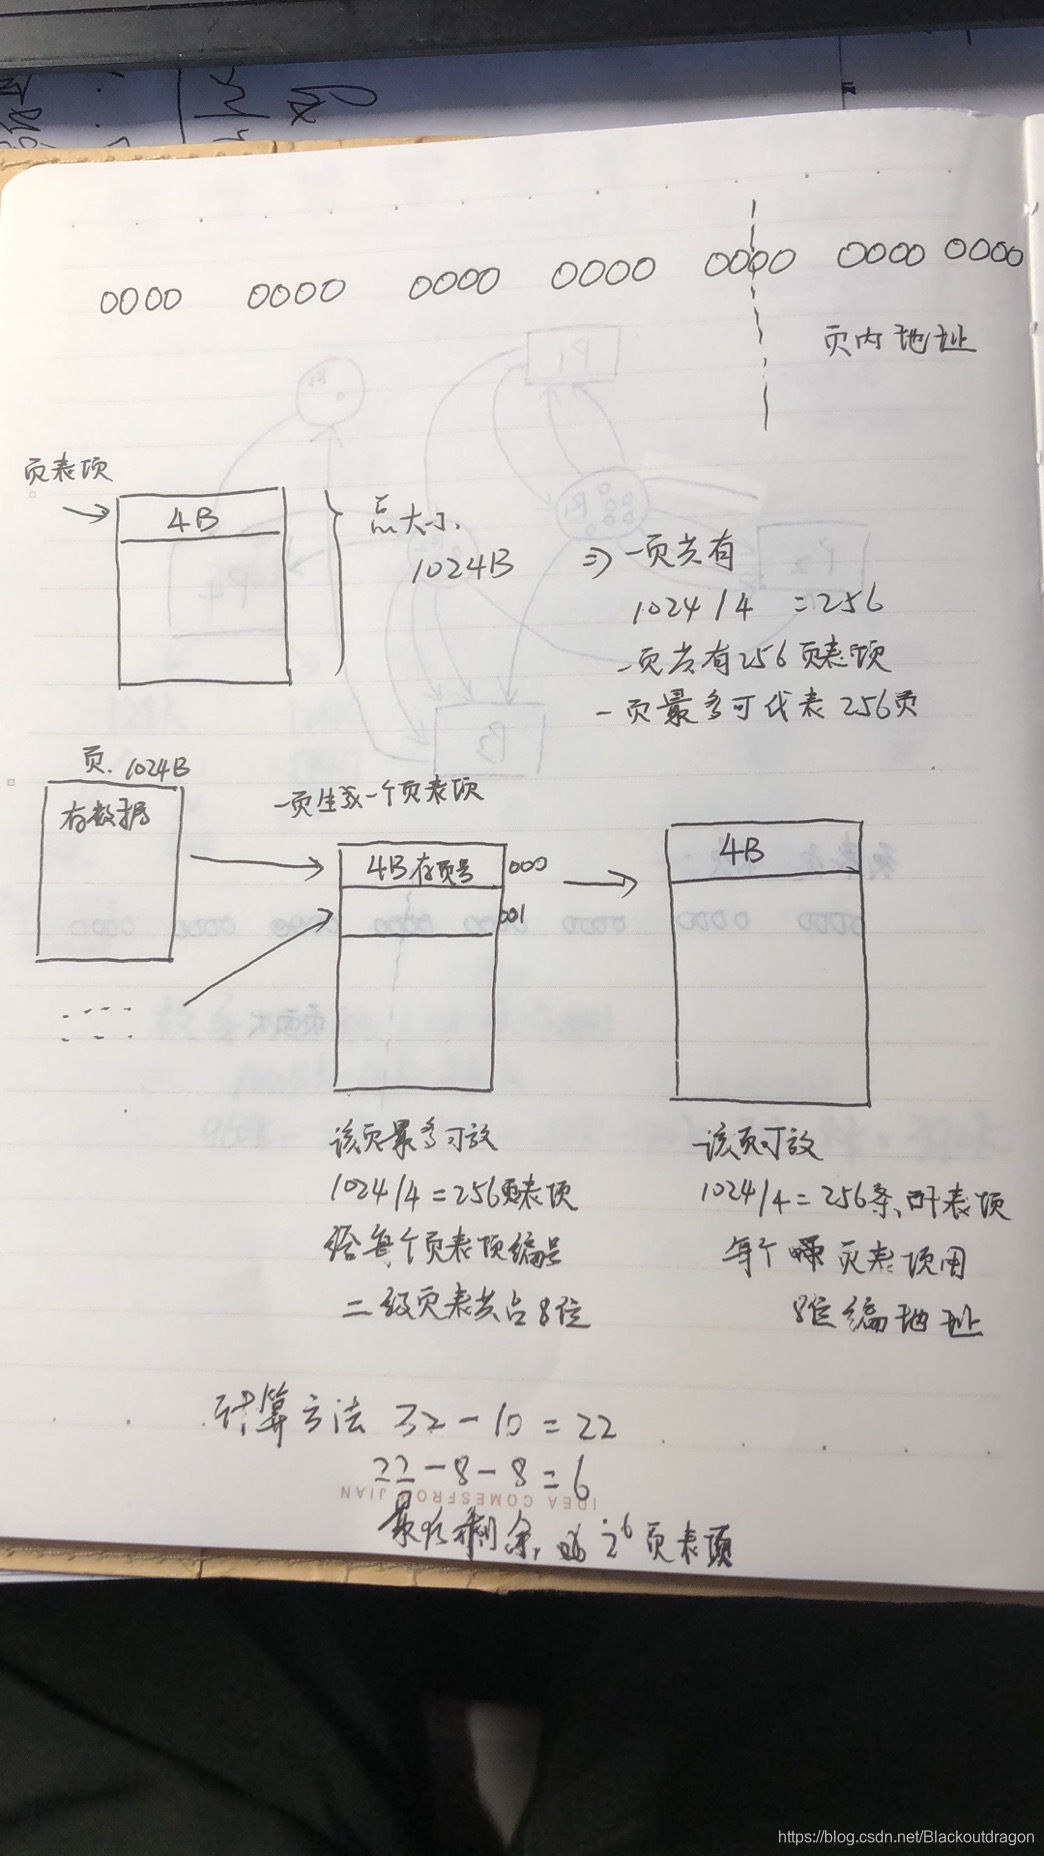 0000 0000 0000 0000 0000 0000 0000
页内地址
页表项
4B
总大小.
1024B
⇒ 一页共有
1024/4 =256
一页共有256页表项
一页最多可代表256页
页. 1024B
存数据
一页生成一个页表项
4B存页号
000
001
4B
该页最多可放
1024/4=256页表项
给每个页表项编号
二级页表共占8位
该页可放
1024/4=256条页表项
每个页表项用
8位编地址
计算方法 32-10=22
22-8-8=6
IDEA COMESFROM JIAN
最后剩余, 2⁶页表项
https://blog.csdn.net/Blackoutdragon